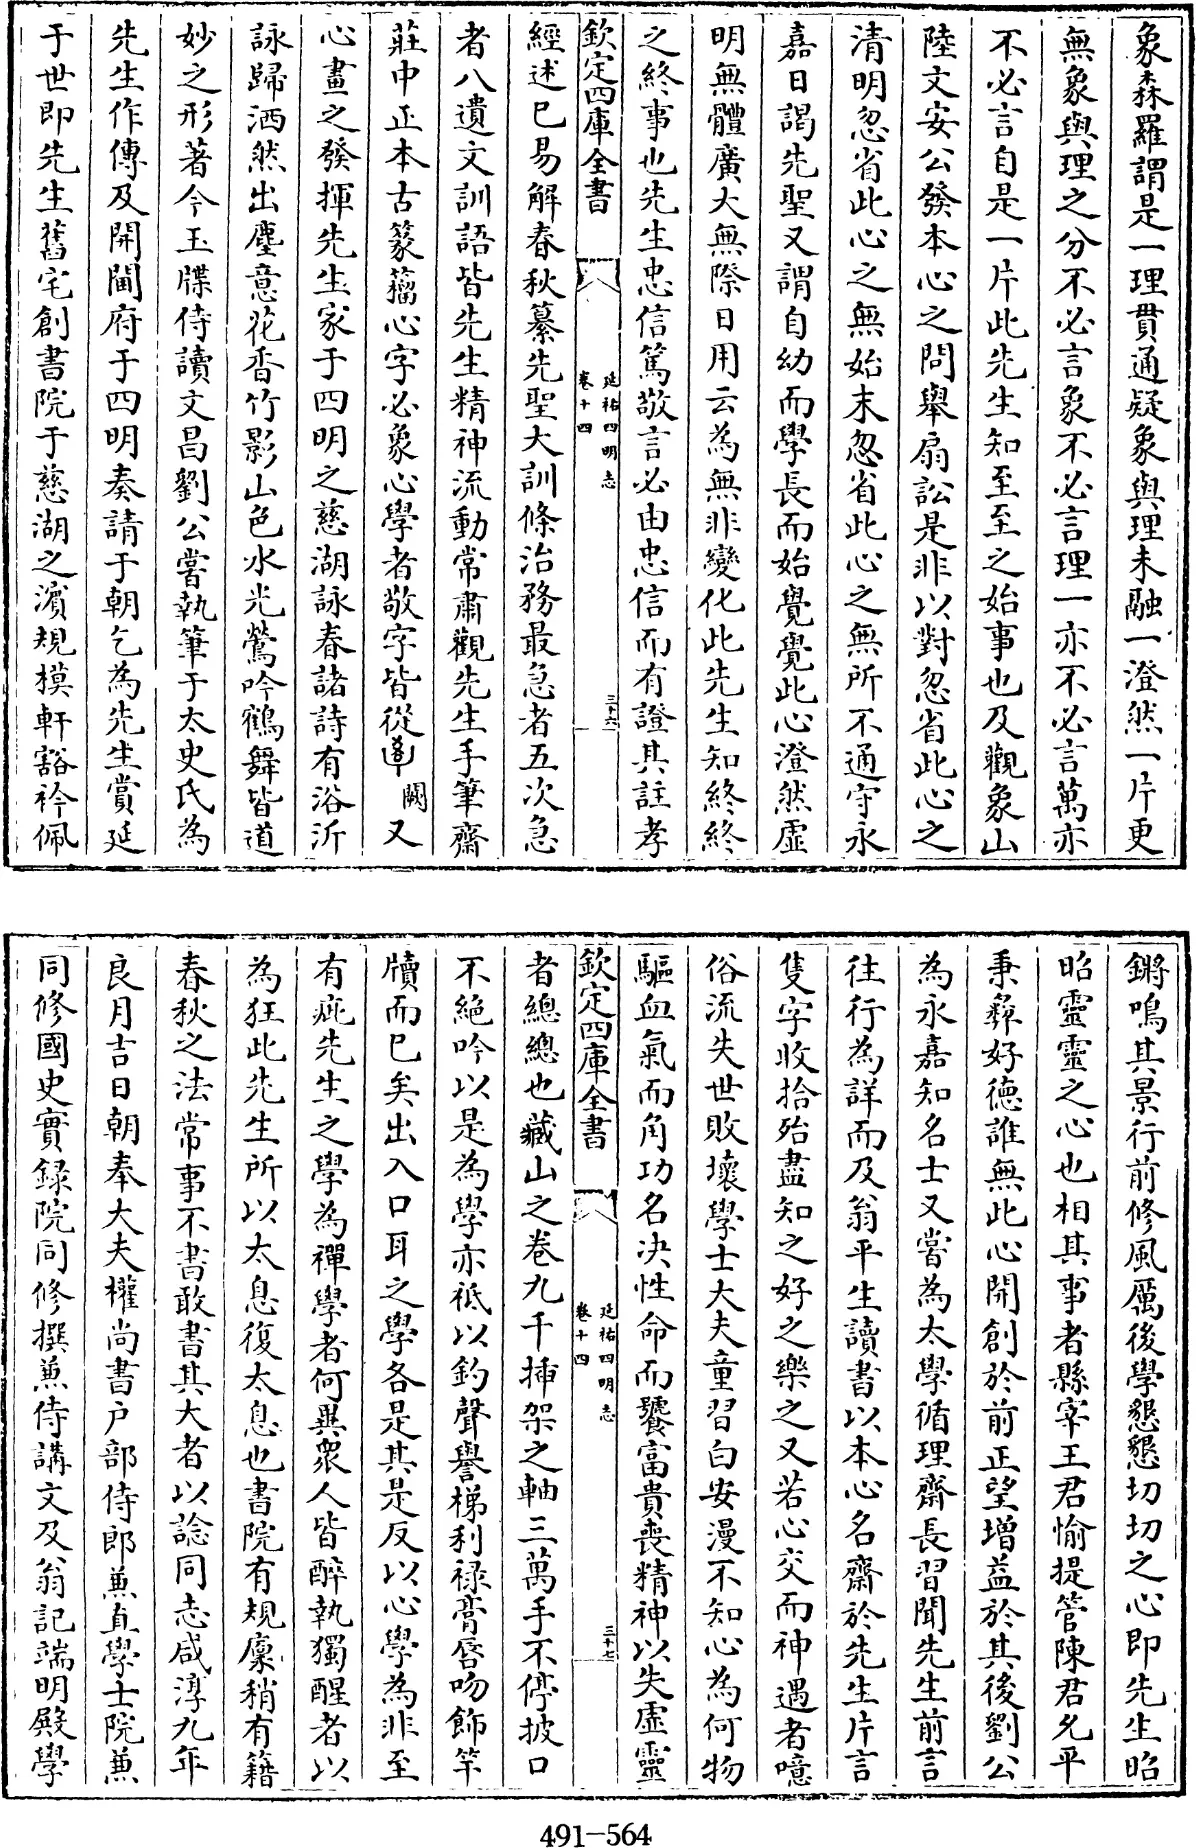 象森羅謂是一理貫通疑象與理未融一澄然一片更
無象與理之分不必言象不必言理一亦不必言萬亦
不必言自是一片此先生知至至之始事也及觀象山
陸文安公發本心之問舉扇訟是非以對忽省此心之
清明忽省此心之無始末忽省此心之無所不通守永
嘉日謁先聖又謂自幼而學長而始覺覺此心澄然虛
明無體廣大無際日用云為無非變化此先生知終終
之終事也先生忠信篤敬言必由忠信而有證其註孝
欽定四庫全書
延祐四明志
卷十四
三十六
經述已易解春秋纂先聖大訓條治務最急者五次急
者八遺文訓語皆先生精神流動常肅觀先生手筆齋
莊中正本古篆籀心字必象心學者敬字皆從 闕又
心畫之發揮先生家于四明之慈湖詠春諸詩有浴沂
詠歸洒然出塵意花香竹影山色水光鶯吟鶴舞皆道
妙之形著今玉牒侍讀文昌劉公嘗執筆于太史氏為
先生作傳及開閫府于四明奏請于朝乞為先生賞延
于世即先生舊宅創書院于慈湖之濵規模軒豁衿佩
鏘鳴其景行前修風厲後學懇懇切切之心即先生昭
昭靈靈之心也相其事者縣宰王君愉提管陳君允平
秉彛好德誰無此心開創於前正望增益於其後劉公
為永嘉知名士又嘗為太學循理齋長習聞先生前言
往行為詳而及翁平生讀書以本心名齋於先生片言
隻字收拾殆盡知之好之樂之又若心交而神遇者噫
俗流失世敗壞學士大夫童習白安漫不知心為何物
驅血氣而角功名决性命而饕富貴喪精神以失虛靈
欽定四庫全書
延祐四明志
卷十四
三十七
者總總也藏山之卷九千揷架之軸三萬手不停披口
不絕吟以是為學亦祗以釣聲譽梯利禄膏唇吻飾竿
牘而已矣出入口耳之學各是其是反以心學為非至
有疵先生之學為禪學者何異衆人皆醉執獨醒者以
為狂此先生所以太息復太息也書院有規廩稍有籍
春秋之法常事不書敢書其大者以諗同志咸淳九年
良月吉日朝奉大夫權尚書户部侍郎兼直學士院兼
同修國史實録院同修撰兼侍講文及翁記端明殿學
491-564